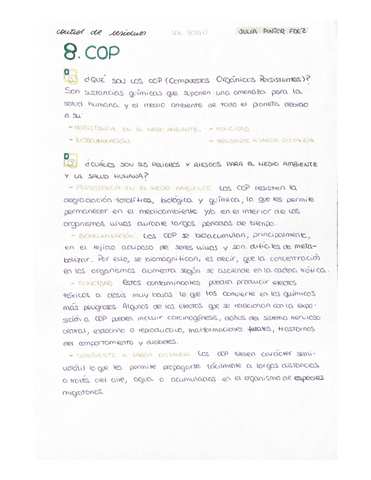 control de residuos
JULIA PINTOR FDEZ
8. COP
¿QUÉ SON LOS COP (Compuestos Orgánicos Persistentes)?
Son sustancias químicas que suponen una amenaza para la
salud humana y el medio ambiente de todo el planeta debido
a su:
- PERSISTENCIA EN EL MEDIO AMBIENTE. - TOXICIDAD
- BIOACUMULACIÓN. - TRANSPORTE A LARGA DISTANCIA
¿CUÁLES SON SUS PELIGROS Y RIESGOS PARA EL MEDIO AMBIENTE
Y LA SALUD HUMANA?
- PERSISTENCIA EN EL MEDIO AMBIENTE Los COP resisten la
degradación fotolítica, biológica y química, lo que les permite
permanecer en el medioambiente y/o en el interior de los
organismos vivos durante largos periodos de tiempo.
- BIOACUMULACIÓN Los COP se bioacumulan, principalmente,
en el tejido adiposo de seres vivos y son difíciles de meta-
bolizar. Por ello, se biomagnifican, es decir, que la concentración
en los organismos aumenta según se asciende en la cadena trófica.
- TOXICIDAD Estos contaminantes pueden producir efectos
tóxicos a dosis muy bajas lo que los convierte en los químicos
más peligrosos. Algunos de los efectos que se relacionan con la expo-
sición a COP pueden incluir carcinogénesis, daños del sistema nervioso
central, endocrino o reproductivo, malformaciones fetales, trastornos
del comportamiento y diabetes.
- TRANSPORTE A LARGA DISTANCIA Los COP tienen carácter semi-
volátil lo que les permite propagarse fácilmente a largas distancias
a través del aire, agua o acumulados en el organismo de especies
migratorias.